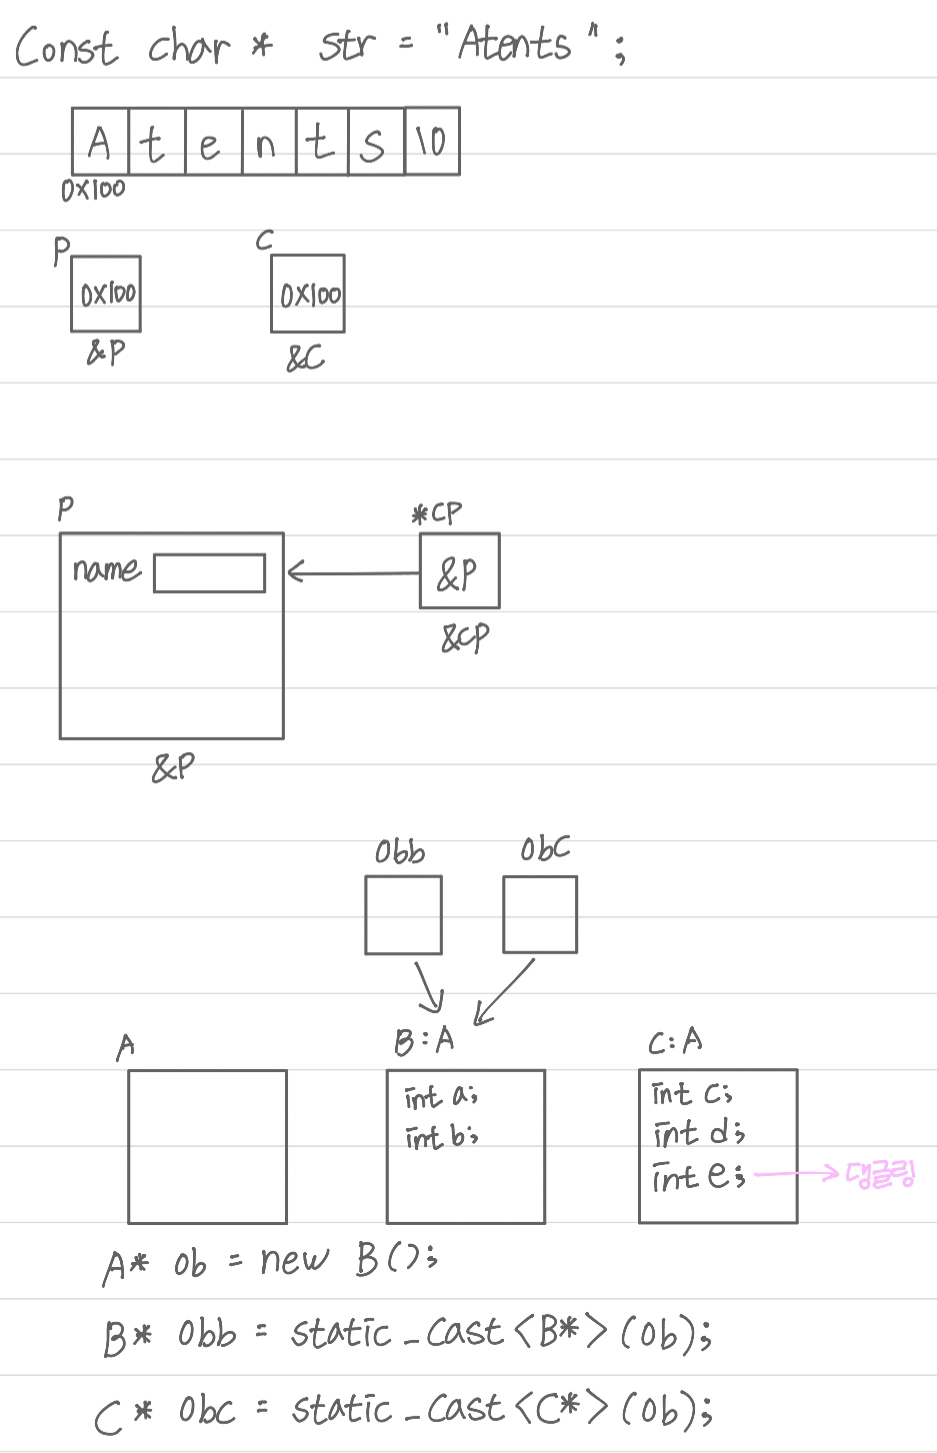 Const char * str = "Atents";
A t e n t s \0
0x100
P C
0x100 0x100
&P &C
P *CP
name &P
&CP
&P
obb obc
A B:A C:A
int a; int c;
int b; int d;
int e; → 댕글링
A* ob = new B();
B* obb = static_cast<B*>(ob);
C* obc = static_cast<C*>(ob);